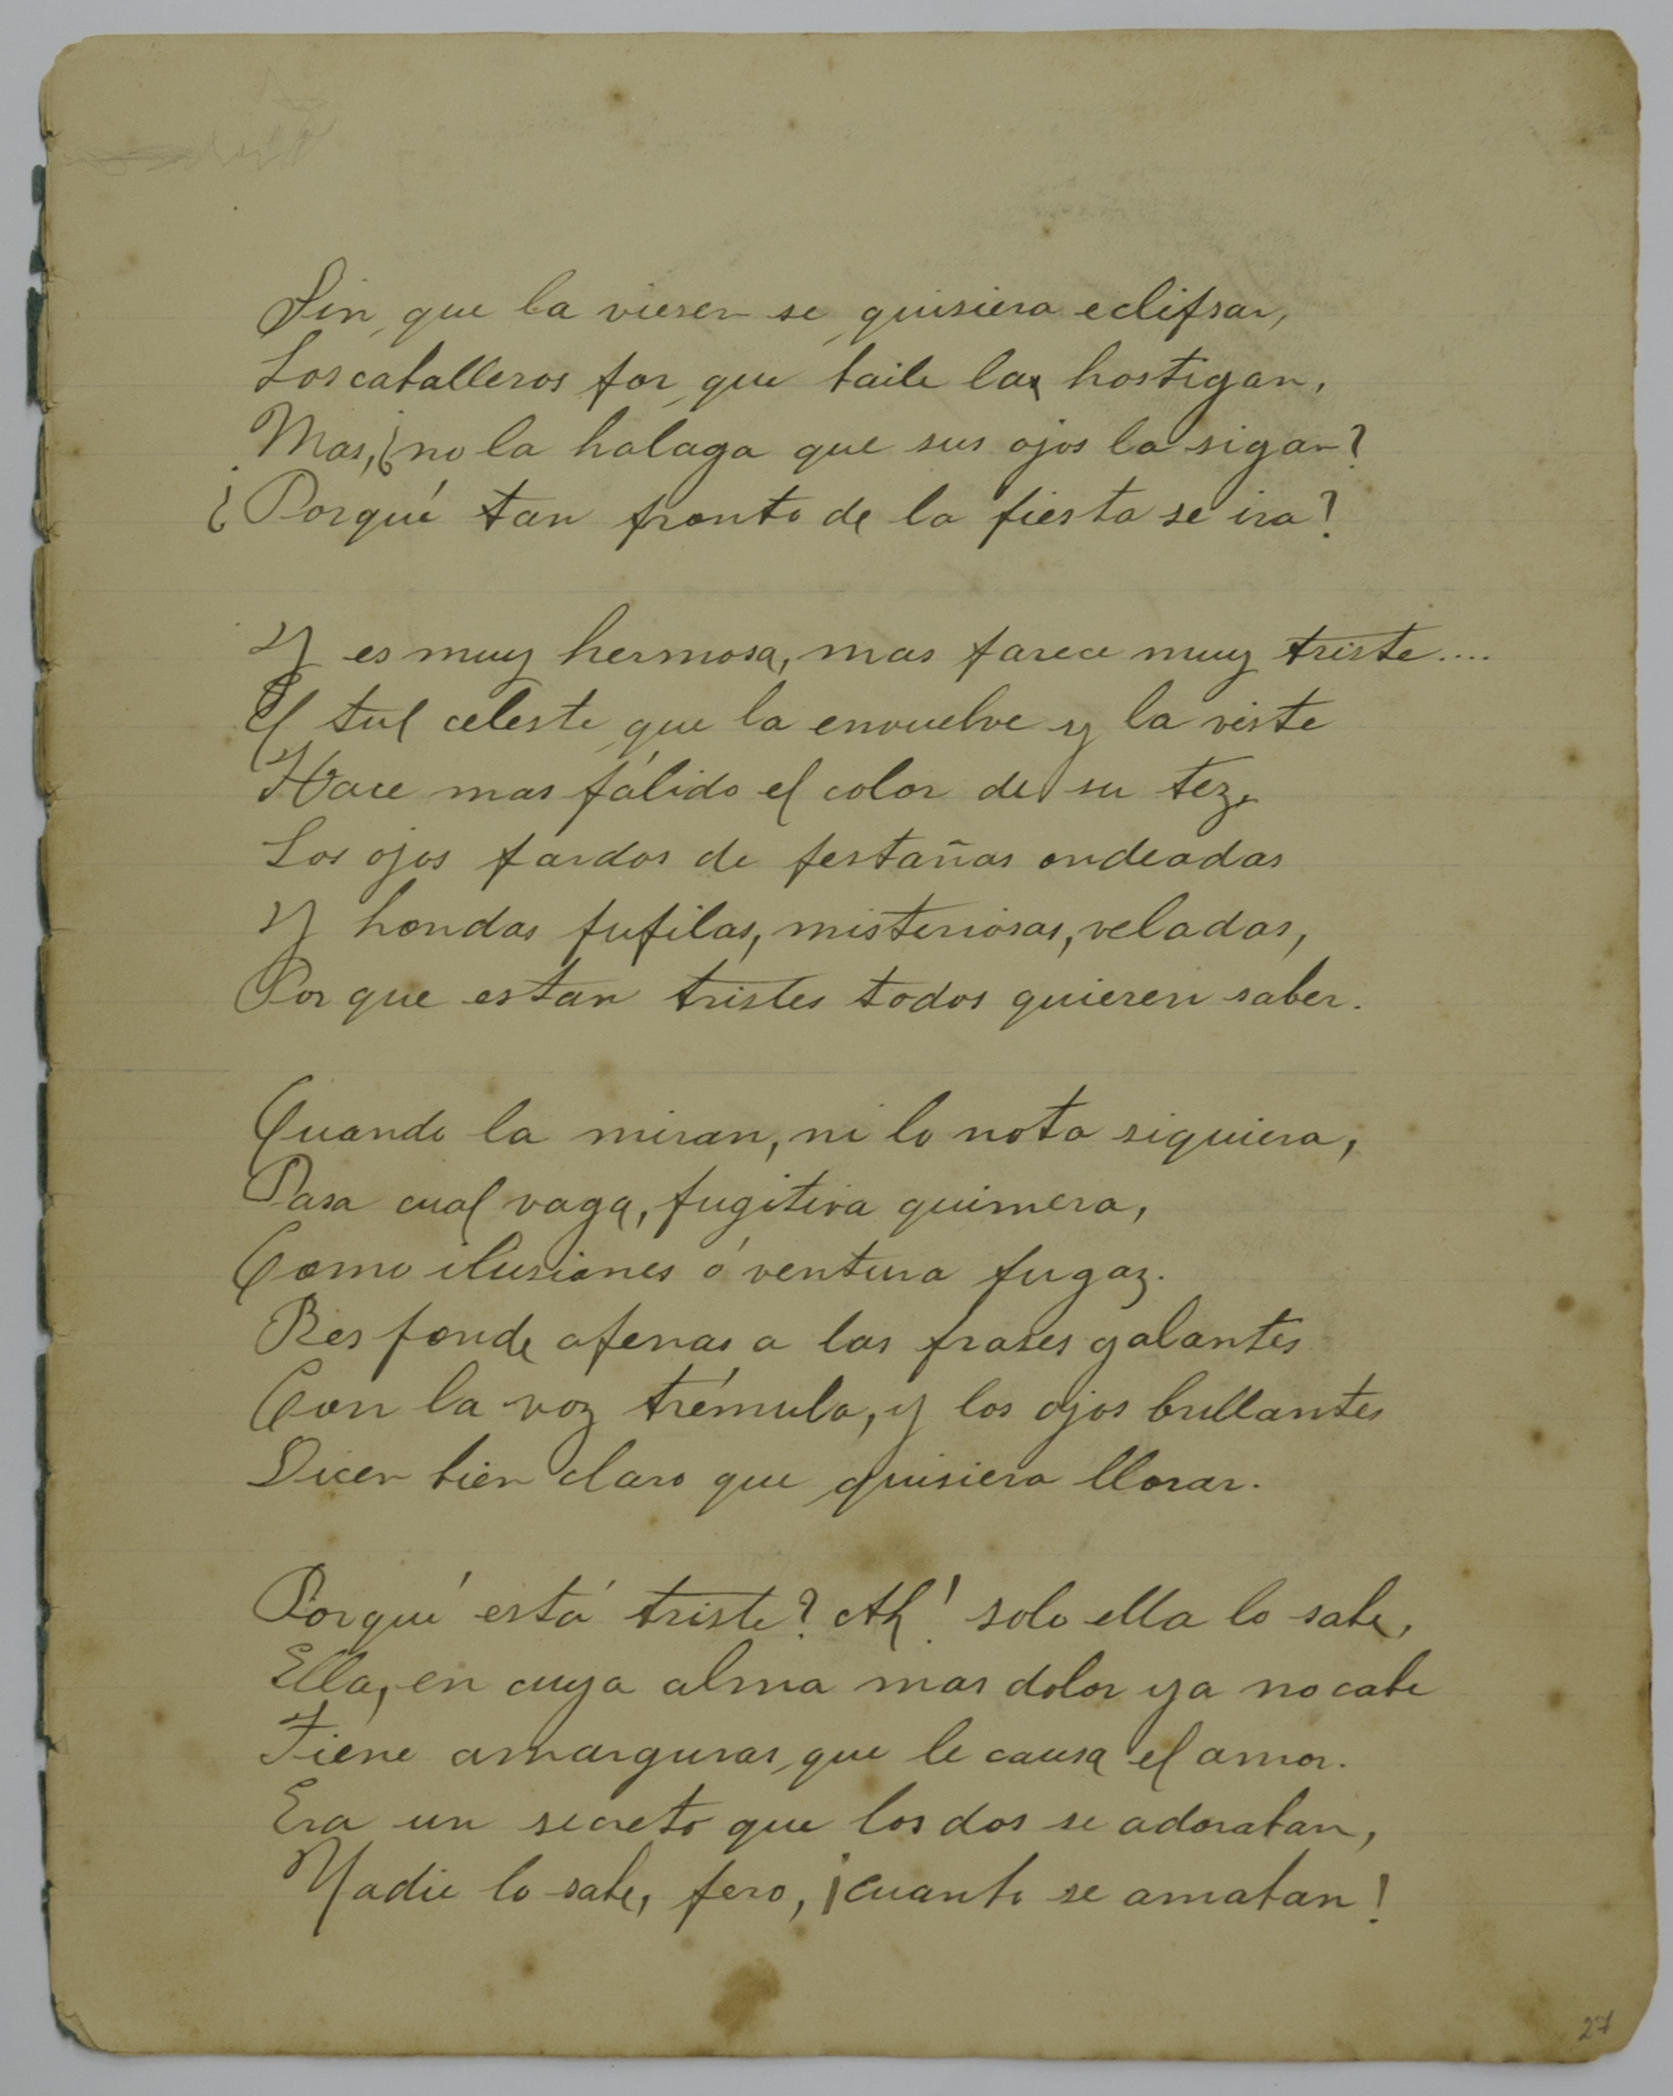 Sin que la viesen se quisiera eclipsar,
Los caballeros por que baile la hostigan,
Mas, ¿no la halaga que sus ojos la sigan?
¿Porqué tan pronto de la fiesta se ira?
Y es muy hermosa, mas parece muy triste....
El tul celeste que la envuelve y la viste
Hace mas pálido el color de su tez,
Los ojos pardos de pestañas ondeadas
Y hondas pupilas, misteriosas, veladas,
Por que estan tristes todos quieren saber.
Cuando la miran, ni lo nota siquiera,
Pasa cual vaga, fugitiva quimera,
Como ilusiones ó ventura fugaz.
Responde apenas a las frases galantes
Con la voz trémula, y los ojos brillantes
Dicen bien claro que quisiera llorar.
Porqué está triste? Ah! solo ella lo sabe,
Ella, en cuya alma mas dolor ya no cabe
Tiene amarguras que le causa el amor.
Era un secreto que los dos se adoraban,
Nadie lo sabe, pero, ¡cuanto se amaban!
27